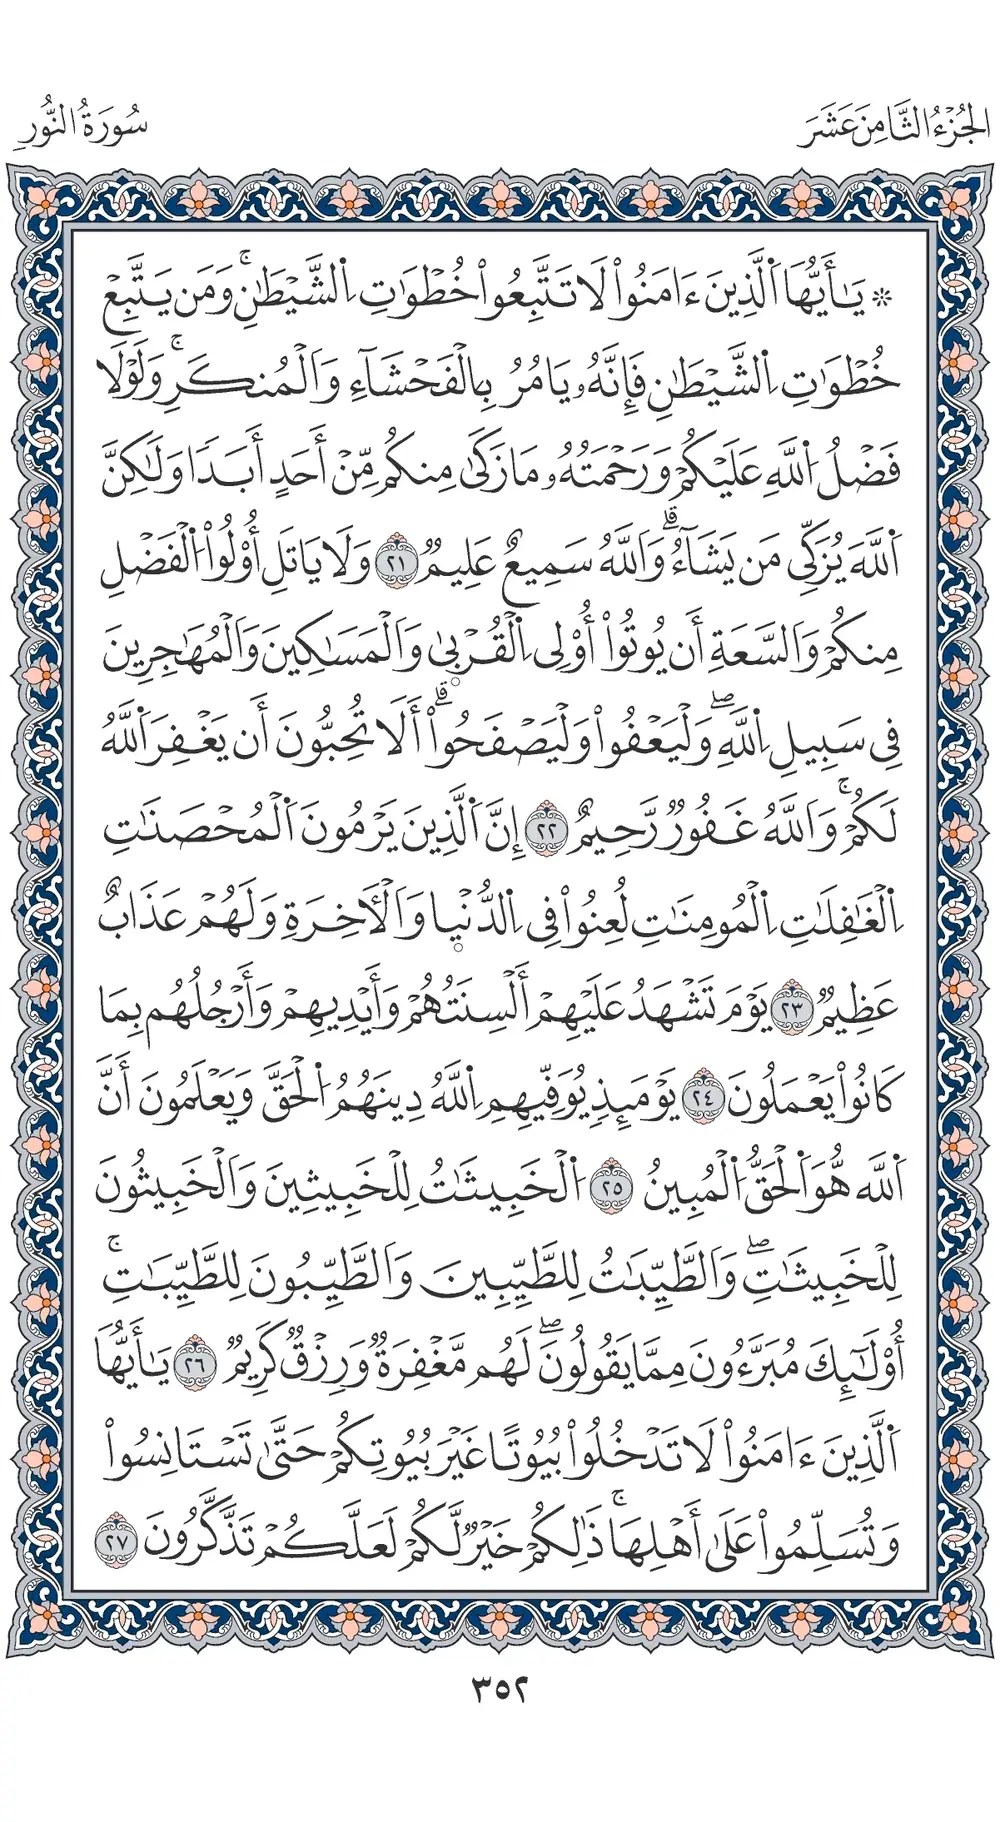 الجُزْءُ الثَّامِنَ عَشَرَ
سُورَةُ النُّورِ
۞ يَٰٓأَيُّهَا اَلَّذِينَ ءَامَنُواْ لَا تَتَّبِعُواْ خُطْوَٰتِ اِلشَّيْطَٰنِۚ وَمَن يَتَّبِعْ
خُطْوَٰتِ اِلشَّيْطَٰنِ فَإِنَّهُۥ يَامُرُ بِالْفَحْشَآءِ وَالْمُنكَرِۚ وَلَوْلَا
فَضْلُ اُللَّهِ عَلَيْكُمْ وَرَحْمَتُهُۥ مَا زَكَىٰ مِنكُم مِّنْ أَحَدٍ أَبَدٗا وَلَٰكِنَّ
اَللَّهَ يُزَكِّى مَن يَشَآءُۗ وَاللَّهُ سَمِيعٌ عَلِيمٞ ٢١ وَلَا يَاتَلِ أُوْلُواْ اُلْفَضْلِ
مِنكُمْ وَالسَّعَةِ أَن يُوتُواْ أُوْلِى اِلْقُرْبىٰ وَالْمَسَٰكِينَ وَالْمُهَٰجِرِينَ
فِى سَبِيلِ اِللَّهِۖ وَلْيَعْفُواْ وَلْيَصْفَحُواْۗ أَلَا تُحِبُّونَ أَن يَغْفِرَ اَللَّهُ
لَكُمْۚ وَاللَّهُ غَفُورٞ رَّحِيمٌ ٢٢ إِنَّ اَلَّذِينَ يَرْمُونَ اَلْمُحْصَنَٰتِ
اِلْغَٰفِلَٰتِ اِلْمُومِنَٰتِ لُعِنُواْ فِى اِلدُّنْيا وَالْأٓخِرَةِ وَلَهُمْ عَذَابٌ
عَظِيمٞ ٢٣ يَوْمَ تَشْهَدُ عَلَيْهِمْ أَلْسِنَتُهُمْ وَأَيْدِيهِمْ وَأَرْجُلُهُم بِمَا
كَانُواْ يَعْمَلُونَ ٢٤ يَوْمَئِذٖ يُوَفِّيهِمِ اِللَّهُ دِينَهُمُ اُلْحَقَّ وَيَعْلَمُونَ أَنَّ
اَللَّهَ هُّوَ اَلْحَقُّ اُلْمُبِينُ ٢٥ اِلْخَبِيثَٰتُ لِلْخَبِيثِينَ وَالْخَبِيثُونَ
لِلْخَبِيثَٰتِۖ وَالطَّيِّبَٰتُ لِلطَّيِّبِينَ وَالطَّيِّبُونَ لِلطَّيِّبَٰتِۚ
أُوْلَٰٓئِكَ مُبَرَّءُونَ مِمَّا يَقُولُونَۖ لَهُم مَّغْفِرَةٞ وَرِزْقٞ كَرِيمٞ ٢٦ يَٰٓأَيُّهَا
اَلَّذِينَ ءَامَنُواْ لَا تَدْخُلُواْ بُيُوتًا غَيْرَ بُيُوتِكُمْ حَتَّىٰ تَسْتَانِسُواْ
وَتُسَلِّمُواْ عَلَىٰ أَهْلِهَاۚ ذَٰلِكُمْ خَيْرٞ لَّكُمْ لَعَلَّكُمْ تَذَّكَّرُونَ ٢٧
٣٥٢